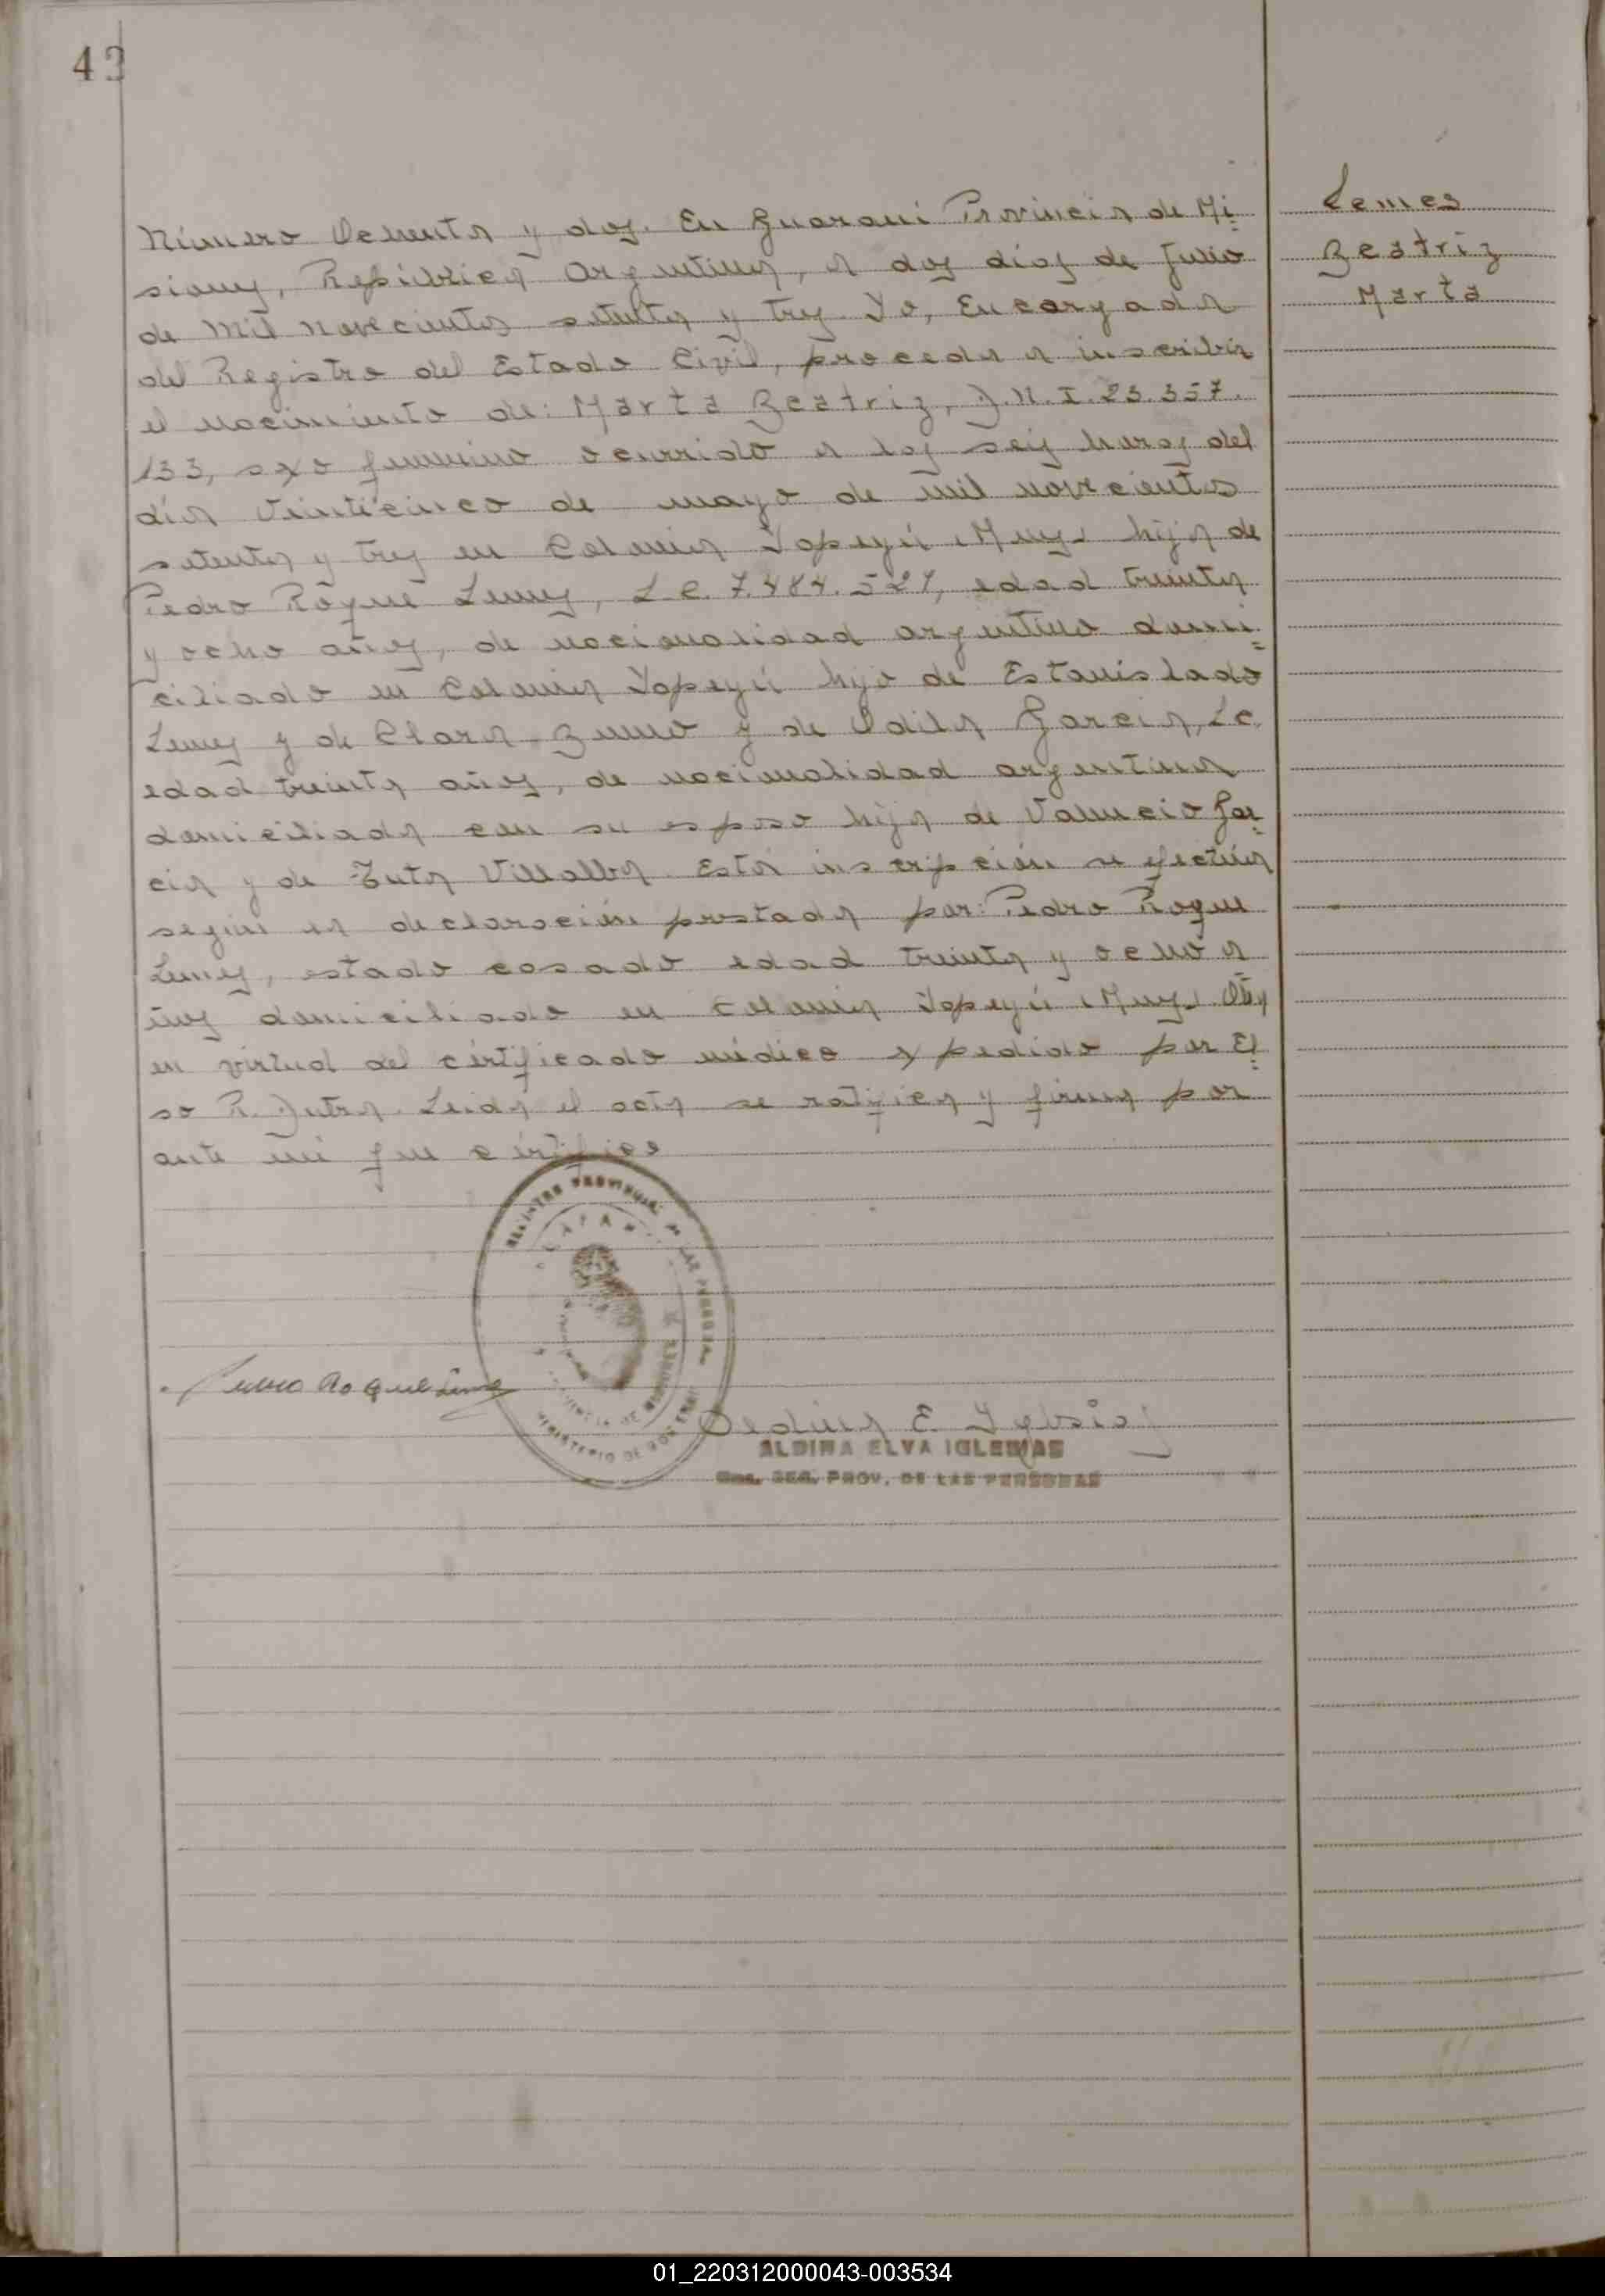 42
Lemes
Beatriz
Marta
Número Ochenta y dos. En Guaraní Provincia de Mi-
siones, República Argentina, a dos días de Julio
de Mil Novecientos setenta y tres. Yo, Encargada
del Registro del Estado Civil, procedo a inscribir
el nacimiento de: Marta Beatriz, D.N.I. 23.357.
133, sexo femenino ocurrido a las seis horas del
día veinticinco de mayo de mil novecientos
setenta y tres en Colonia Yapeyú (Mnes) hija de
Pedro Roque Lemes, L.E. 7.484.527, edad treinta
y ocho años, de nacionalidad argentino domi-
ciliado en Colonia Yapeyú hijo de Estanislado
Lemes y de Clara y de Odila Garcia, L.C.
edad treinta años, de nacionalidad argentina
domiciliada con su esposo hija de Gar-
cia y de Villalba. Esta inscripción se efectúa
según la declaración prestada por: Pedro Roque
Lemes, estado casado edad treinta y ocho a
ños domiciliado en Colonia Yapeyú (Mnes)
en virtud del certificado médico expedido por El-
sa R. Dutra. Leida el acta se ratifica y firma por
ante mi que certifico
REGISTRO PROVINCIAL DE LAS PERSONAS
MINISTERIO DE GOBIERNO
Pedro Roque Lemes
ALDINA ELVA IGLESIAS
REG. PROV. DE LAS PERSONAS
01_220312000043-003534